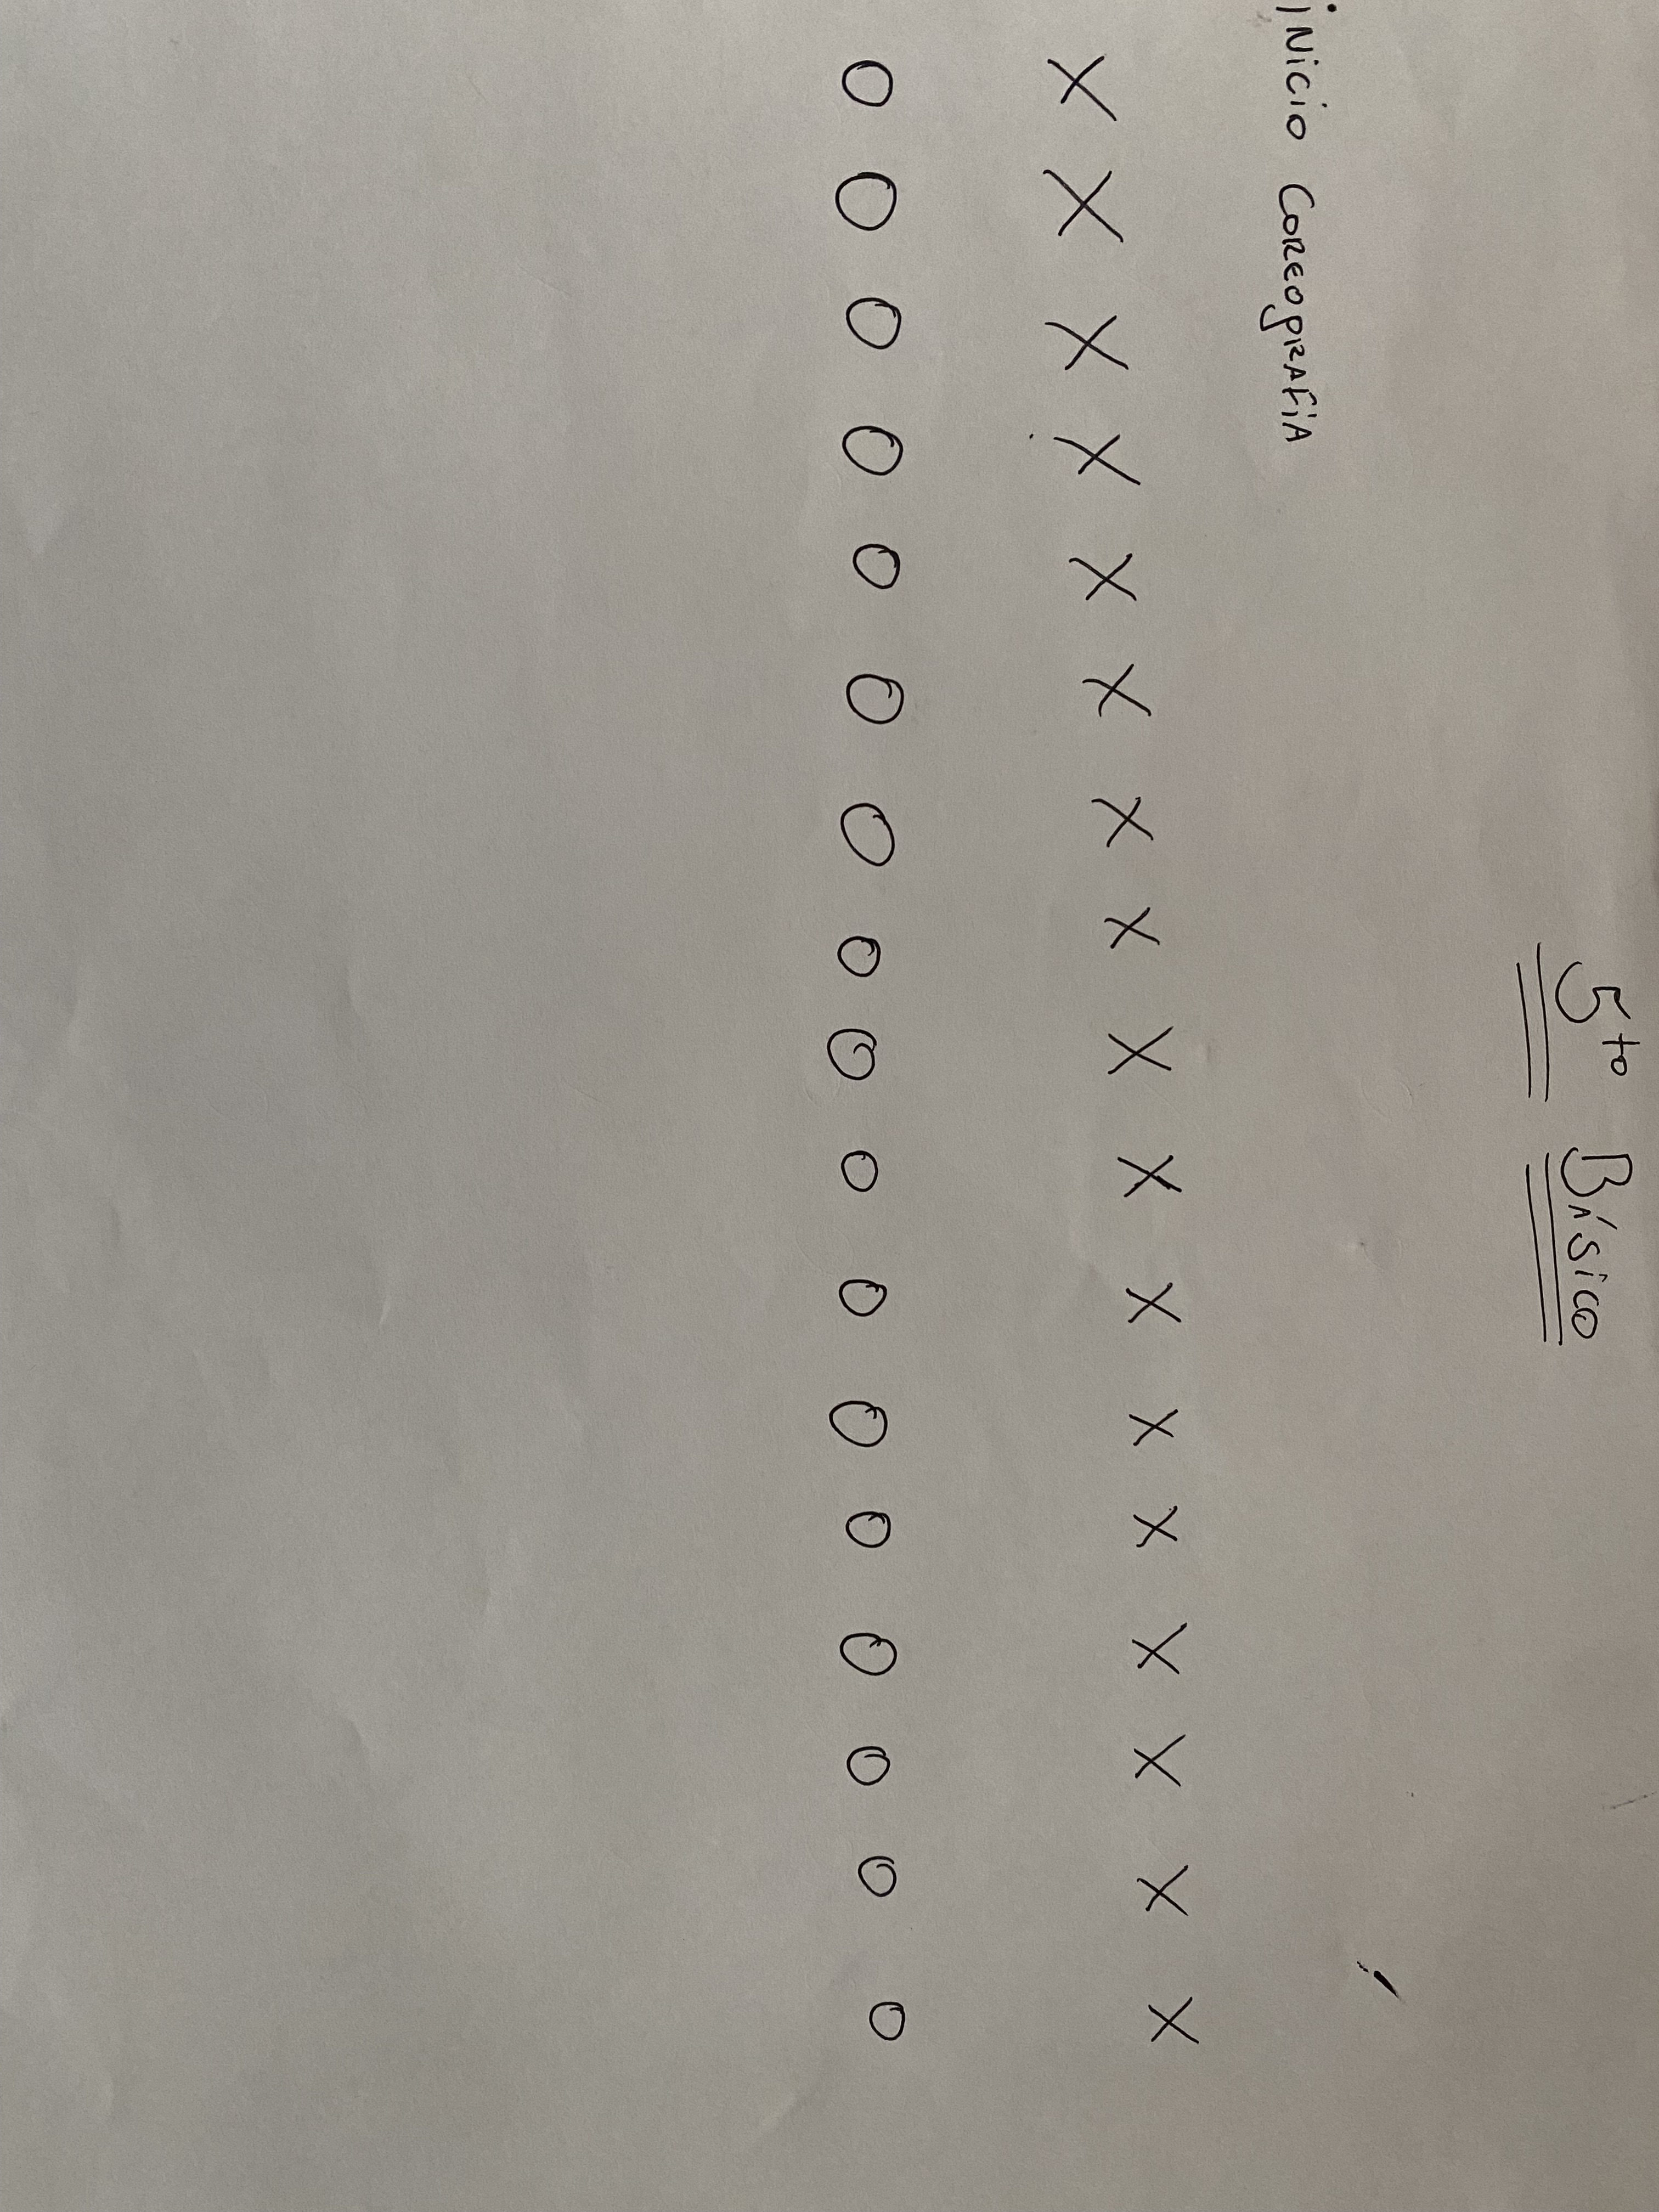 5to Básico
inicio Coreografía
X X X X X X X X X X X X X X X X X
O O O O O O O O O O O O O O O O O